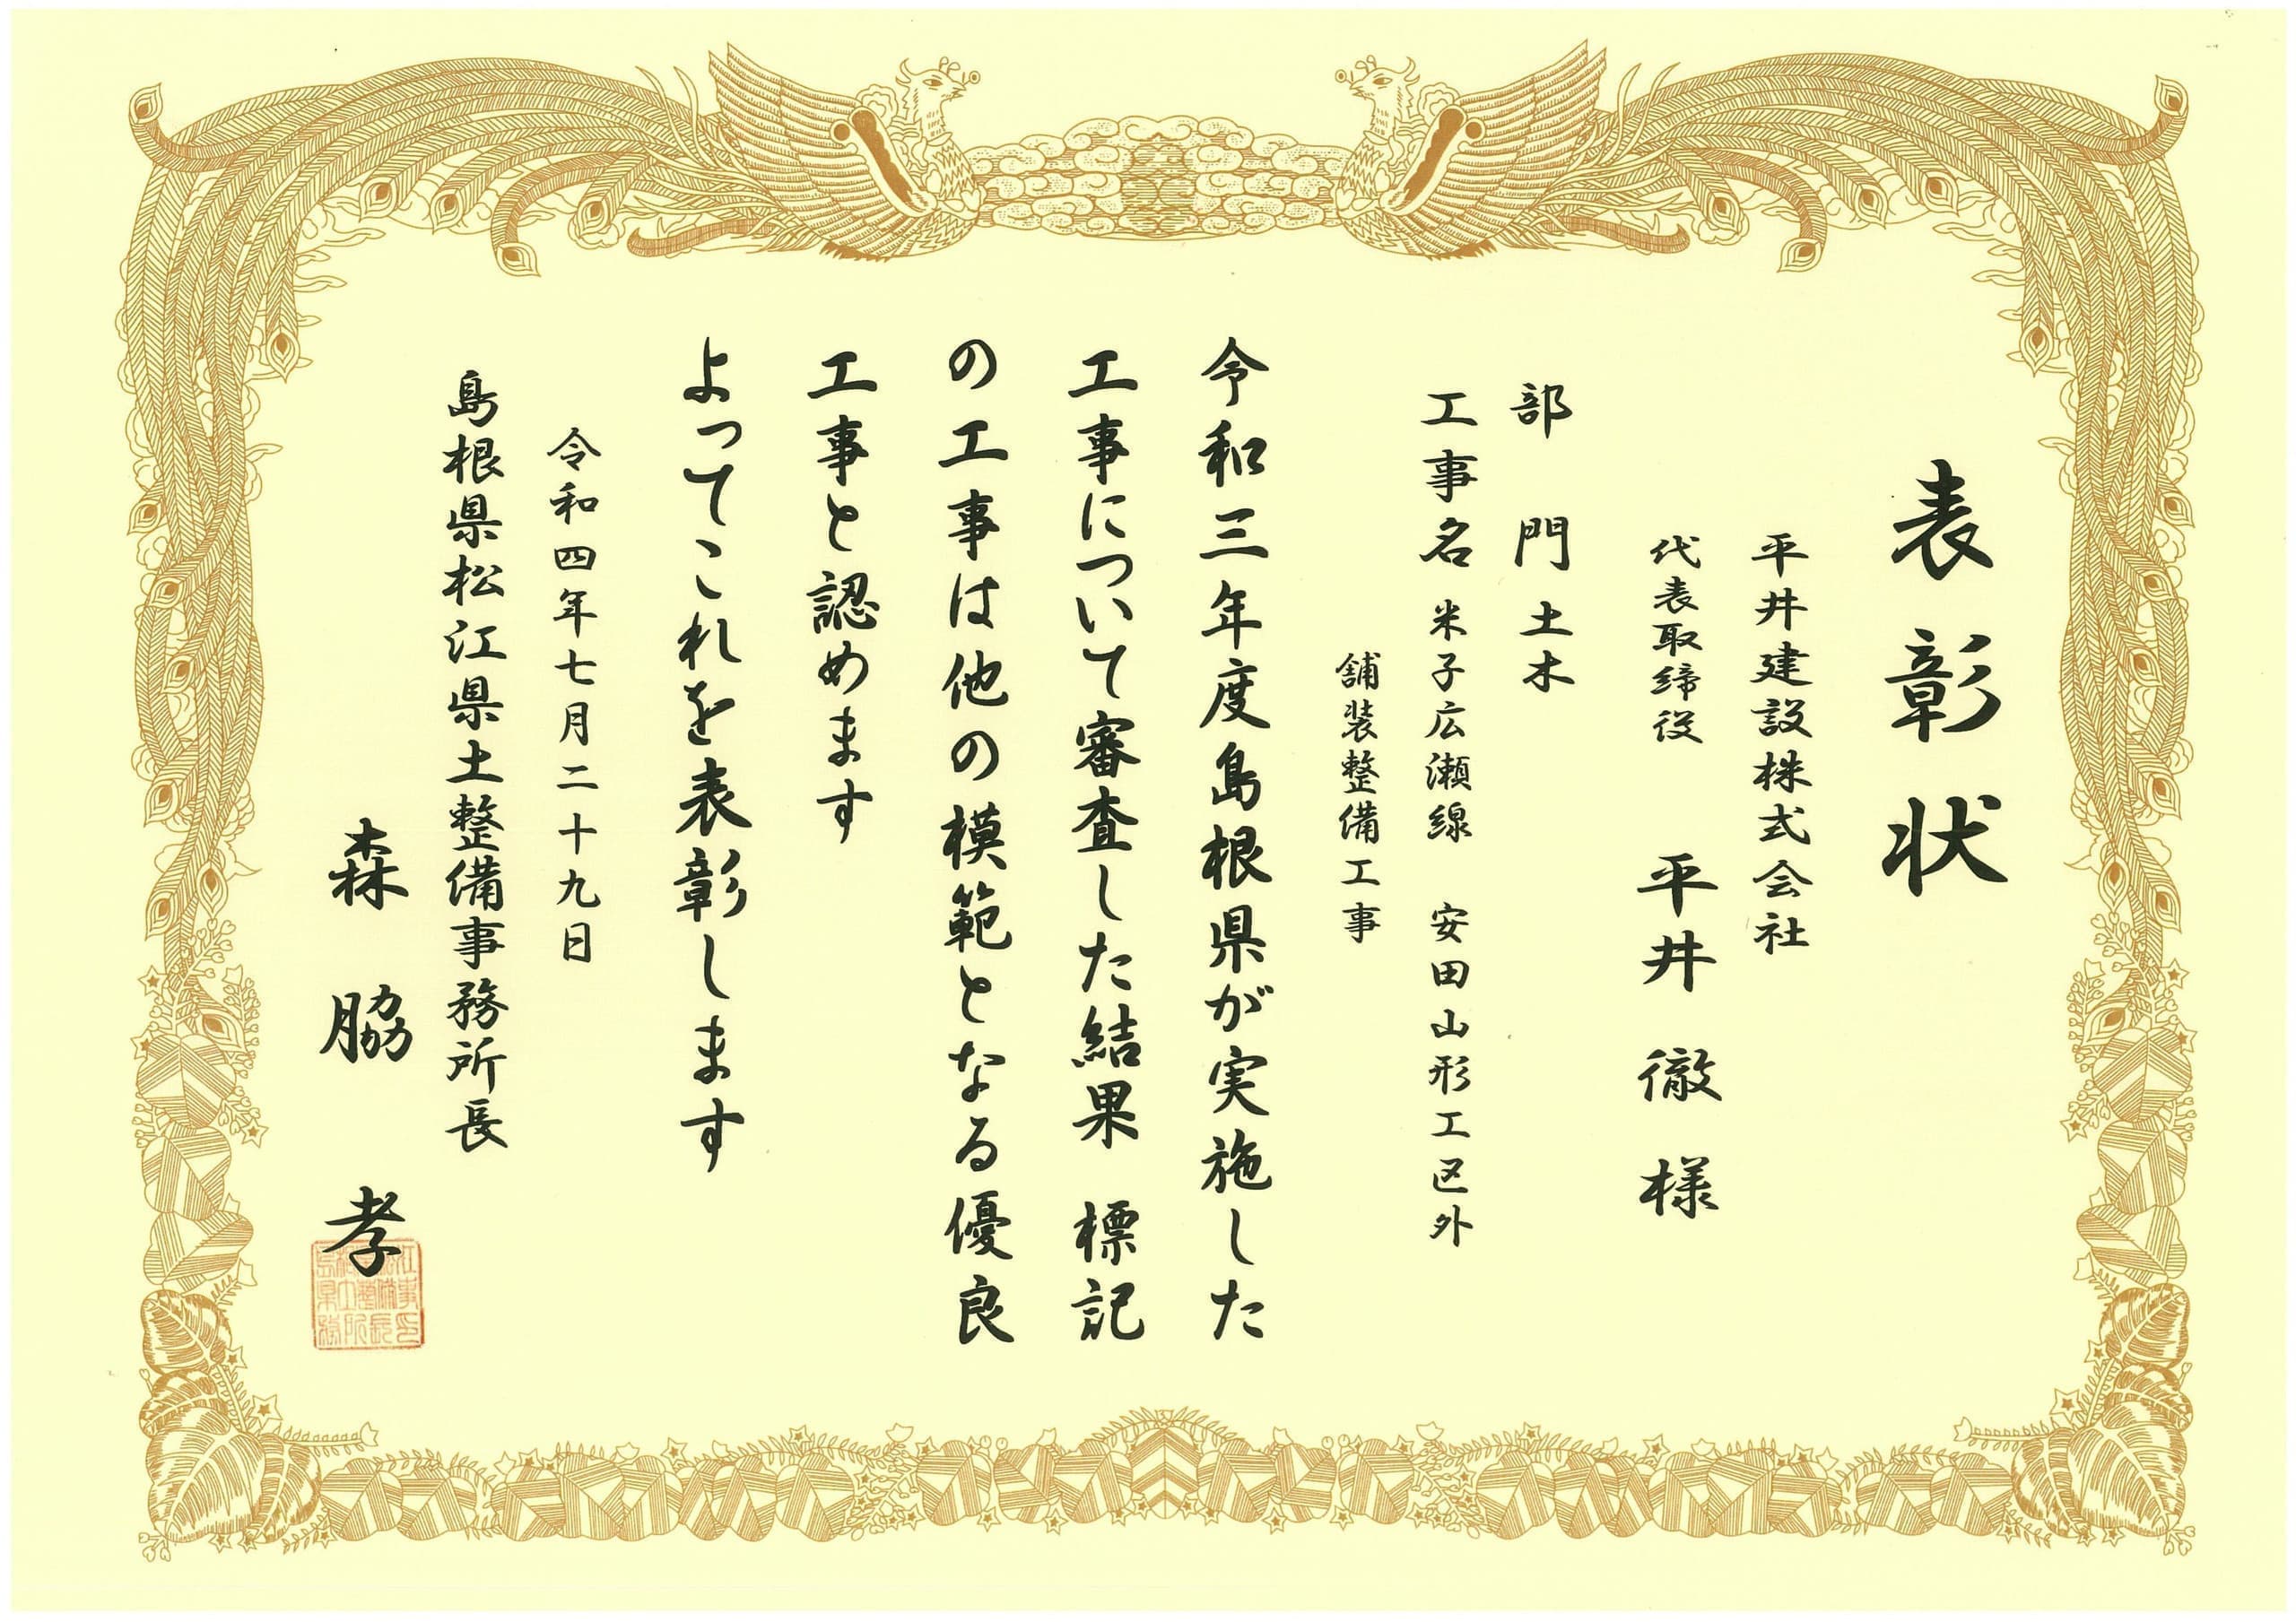 表彰状
平井建設株式会社
代表取締役 平井 徹 様
部 門 土木
工事名 米子広瀬線 安田山形工区外
舗装整備工事
令和三年度島根県が実施した
工事について審査した結果 標記
の工事は他の模範となる優良
工事と認めます
よってこれを表彰します
令和四年七月二十九日
島根県松江県土整備事務所長
森脇 孝